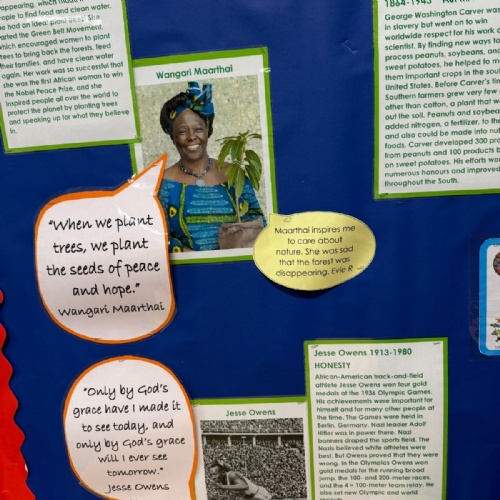 appearing, which made it
people to find food and clean water.
had an idea: plant trees! She
started the Green Belt Movement,
which encouraged women to plant
trees to bring back the forests, feed
their families, and have clean water
again. Her work was so successful that
she was the first African woman to win
the Nobel Peace Prize, and she
inspired people all over the world to
protect the planet by planting trees
and speaking up for what they believe
in.
Wangari Maarthai
"When we plant
trees, we plant
the seeds of peace
and hope."
Wangari Maarthai
Maarthai inspires me
to care about
nature. She was sad
that the forest was
disappearing. Evie R
1864-1943
George Washington Carver was
in slavery but went on to win
worldwide respect for his work
scientist. By finding new ways to
process peanuts, soybeans, and
sweet potatoes, he helped to m
them important crops in the sout
United States. Before Carver's tim
Southern farmers grew very few
other than cotton, a plant that w
out the soil. Peanuts and soybean
added nitrogen, a fertilizer, to the
and also could be made into nut
foods. Carver developed 300 pro
from peanuts and 100 products b
on sweet potatoes. His efforts wo
numerous honours and improved
throughout the South.
"Only by God's
grace have I made it
to see today, and
only by God's grace
will I ever see
tomorrow."
Jesse Owens
Jesse Owens
Jesse Owens 1913-1980
HONESTY
African-American track-and-field
athlete Jesse Owens won four gold
medals at the 1936 Olympic Games.
His achievements were important for
himself and for many other people at
the time. The Games were held in
Berlin, Germany. Nazi leader Adolf
Hitler was in power there. Nazi
banners draped the sports field. The
Nazis believed white athletes were
best. But Owens proved that they were
wrong. In the Olympics Owens won
gold medals for the running broad
jump, the 100- and 200-meter races,
and the 4 × 100-meter team relay. He
also set new Olympic and world